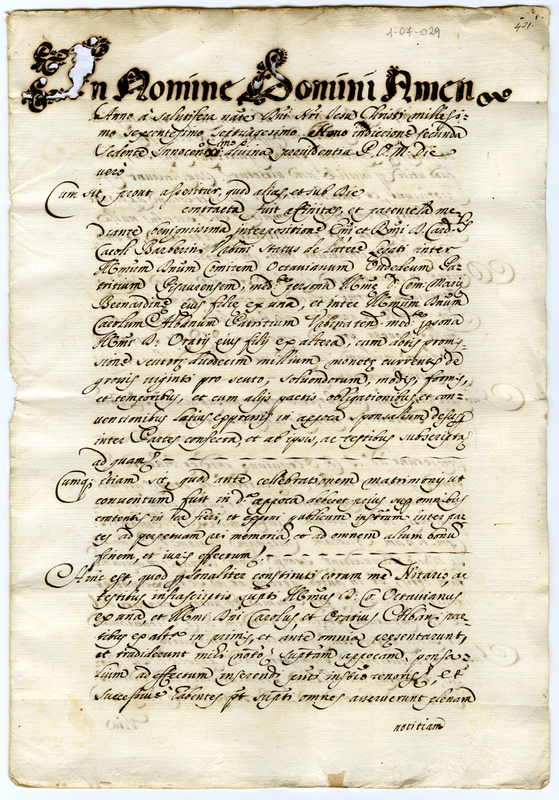 1-07-029
421
In Nomine Domini Amen
Anno à salutifera natte Dni Nri Jesu Christi millesi-
mo septentesimo septuagesimo Nono indictione secunda
Sedente Innocen. XI divina providentia P. O. M. Die
vero
Cum sit, prout asseritur, quod alias, et sub Die
contracta fuit affinitas, et parentela me-
diante benignissima interpositione Emi et Rmi D. Card. S.
Caroli Barberini Urbini Status de Latere Legati inter
Illmum Dnum Comitem Octavianum Ondedeum Pa-
tritium Pisaurensem, med. persona Illme D. Com. Marie
Bernardine eius filie ex una, et inter Illmum Dnum
Carolum Albanum Patritium Urbinatem med. psona
Illmi D. Oratij eius filij ex altera, cum dotis promis-
sione scutorum duodecim millium monete currentis de
grossis viginti pro scuto, solvendorum, modis, formis,
et temporibus, et cum alijs pactis obligationibus et con-
ventionibus latius expressis in apoca sponsalium desup.
inter Partes confecta et ab ipsis, ac testibus subscripta
ad quam
Cumq. etiam sit, quod ante cellebrationem matrimonij ut
conventum fuit in d. apoca debeat prius super omnibus
contentis in fieri, et apponi publicum instrum. inter par-
tes ad perpetuam rei memoriã, et ad omnem alium bonũ
finem, et iuris effectum
Hinc est, quod psonaliter constituti coram me Notario ac
testibus infrascriptis supti Illmus D. Co. Octavianus
ex una, et Illmi Dni Carolus et Oratius Albani par-
tibus ex alt. in primis, et ante omnia presentarunt,
et tradiderunt mihi noto suptam apocam, sponsa-
lium ad effectum inserendi pnti instro tenoris, Et
successive habentes pt supti omnes asseruerunt plenam
notitiam